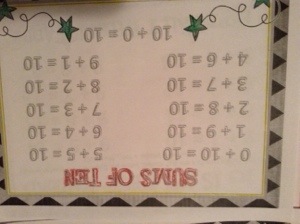 SUMS OF TEN
0 + 10 = 10
5 + 5 = 10
1 + 9 = 10
6 + 4 = 10
2 + 8 = 10
7 + 3 = 10
3 + 7 = 10
8 + 2 = 10
4 + 6 = 10
9 + 1 = 10
10 + 0 = 10